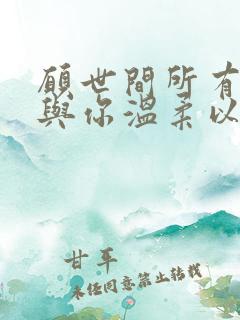 願世間所有
與你溫柔以
甘平
未任同意禁止转载